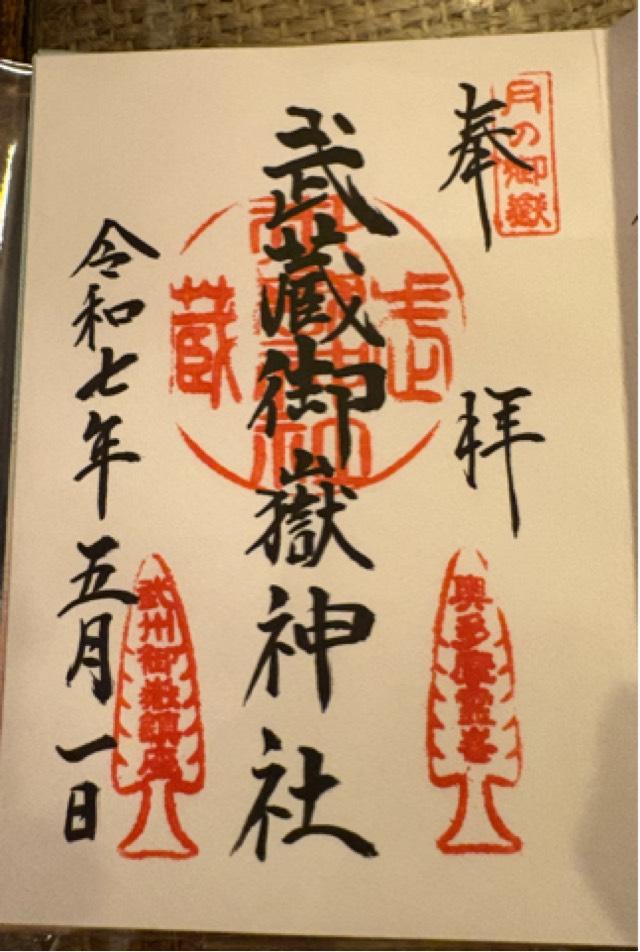 月の御嶽
奉拝
奥多摩霊峯
武蔵御嶽神社
武蔵
武州御嶽鎮座
令和七年五月一日